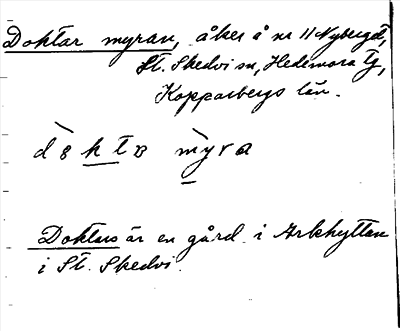 Doktar myran, åker å nr 11 Nybergd,
St. Skedvi sn, Hedemora tg,
Kopparbergs län.
d8ktB myra
Doktars är en gård i Arkhyttan
i St. Skedvi.